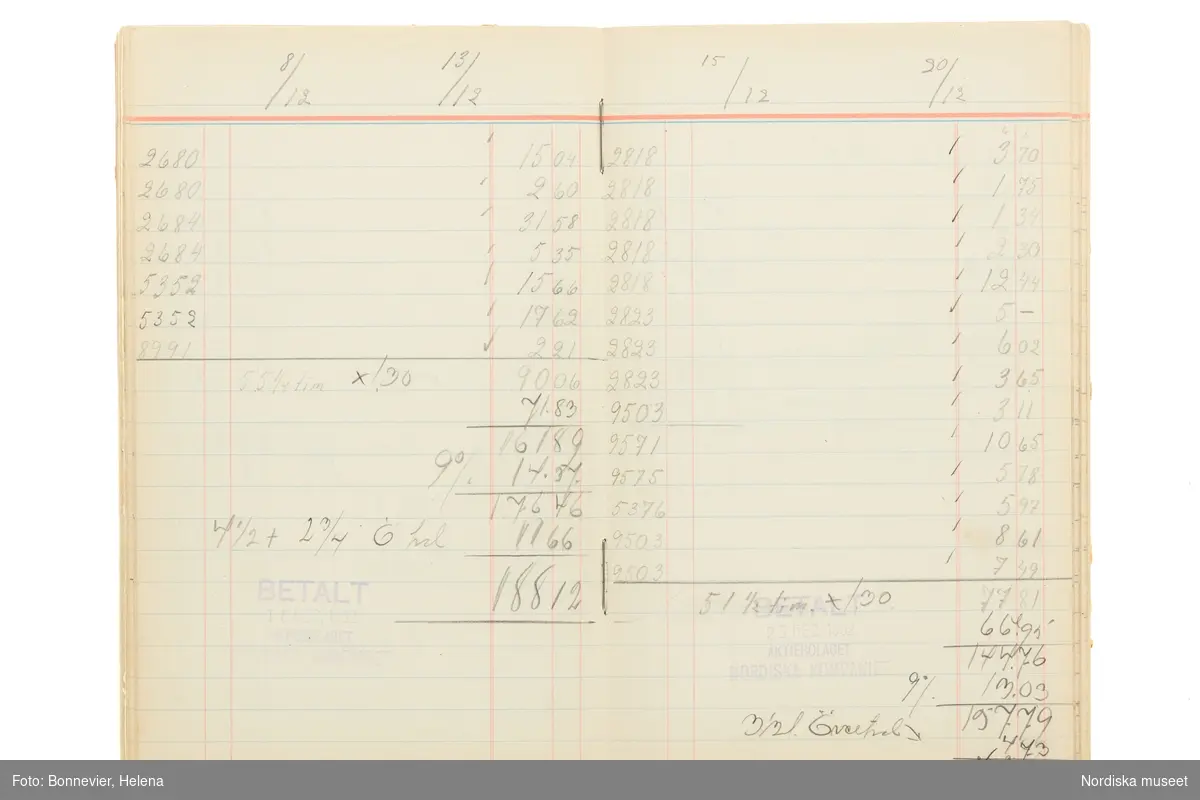 8/12 13/12
2680 15 04
2680 2 60
2684 31 58
2684 5 35
5352 15 66
5352 17 62
8991 2 21
55 1/4 tim × 1,30 90 06
71.83
161 89
9% 14.57
176 46
7 1/2 + 2 3/4 Ö 11 66
188 12
BETALT
15/12 20/12
2818 3 70
2818 1 75
2818 1 34
2818 2 30
2818 12 44
2823 5 —
2823 6 02
2823 3 65
9503 3 11
9571 10 65
9575 5 78
5376 5 97
9503 8 61
9503 7 49
51 1/2 tim. × 1,30 77 81
66.95
144.76
9% 13.03
157.79
4 73
BETALT
23 DEC 1932
AKTIEBOLAGET
NORDISKA KOMPANIET
Foto: Bonnevier, Helena
Nordiska museet